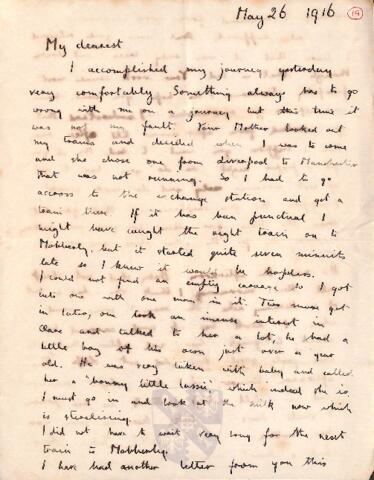 May 26 1916 (19)
My dearest
I accomplished my journey yesterday
very comfortably. Something always has to go
wrong with me on a journey but this time it
was not my fault. Your Mother looked out
my trains and decided when I was to come
and she chose one from Liverpool to Manchester
that was not running. So I had to go
across to the exchange station and get a
train there If it has been punctual I
might have caught the right train on to
Mobberley, but it started quite seven minuits
late so I knew it would be hopeless.
I could not find an empty carriage so I got
into one with one man in it. Two more got
in later, one took an imense interest in
and talked to her a lot, he had a
little boy of his own just over a year
old. He was very taken with baby and called
her a "bonny little lassie" which indeed she is.
I must go in and look at the milk now which
is sterilising.
I did not have to wait very long for the next
train to Mobberley.
I have had another letter from you this